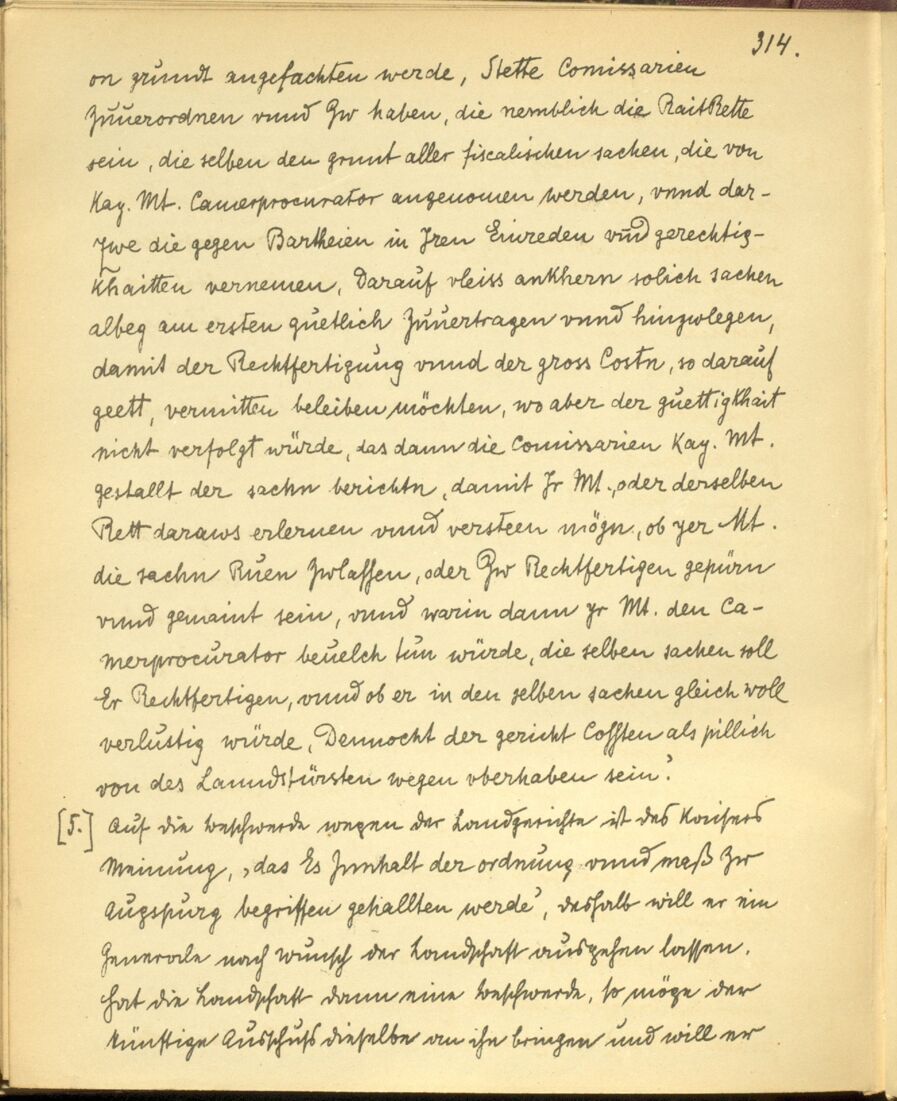 314.
on grundt angefachten werde, Stette Comissarien
Zuuerordnen vnnd Zw haben, die nemblich die RaitRette
sein, die selben den grunt aller fiscalischen sachen, die von
Kay. Mt. Camerprocurator angenomen werden, vnnd dar-
Zwe die gegen Partheien in Jren Einreden vnd gerechtig-
Khaitten vernemen, Darauf vleiss ankhern solich sachen
albeg am ersten guetlich Zuuertragen vnnd hinzwlegen,
damit der Rechtfertigung vnnd der gross Costn, so darauf
geett, vermitten beleiben möchten, wo aber der guettigKhait
nicht verfolgt würde, das dann die Comissarien Kay. Mt.
gestallt der sachn berichtn, damit Jr Mt., oder derselben
Rett daraws erlernen vnnd versteen mögn, ob yer Mt.
die sachn Ruen Zwlassen, oder Zw Rechtfertigen gepürn
vnnd gemaint sein, vnnd warin dann yr Mt. den Ca-
merprocurator beuelch tun würde, die selben sachen soll
Er Rechtfertigen, vnnd ob er in den selben sachen gleich woll
verlustig würde, Dennocht der gericht Cossten als pillich
von des Lanndsfürsten wegen vberhaben sein'.
[5.] Auf die Beschwerde wegen der Landgerichte ist des Kaisers
Meinung, 'das Es Jnnhalt der ordnung vnnd maß Zw
Augspurg begriffen gehallten werde', deshalb will er ein
Generale nach Wunsch der Landschaft ausgehen lassen.
Hat die Landschaft dann eine Beschwerde, so möge der
künftige Ausschuss dieselbe an ihn bringen und will er